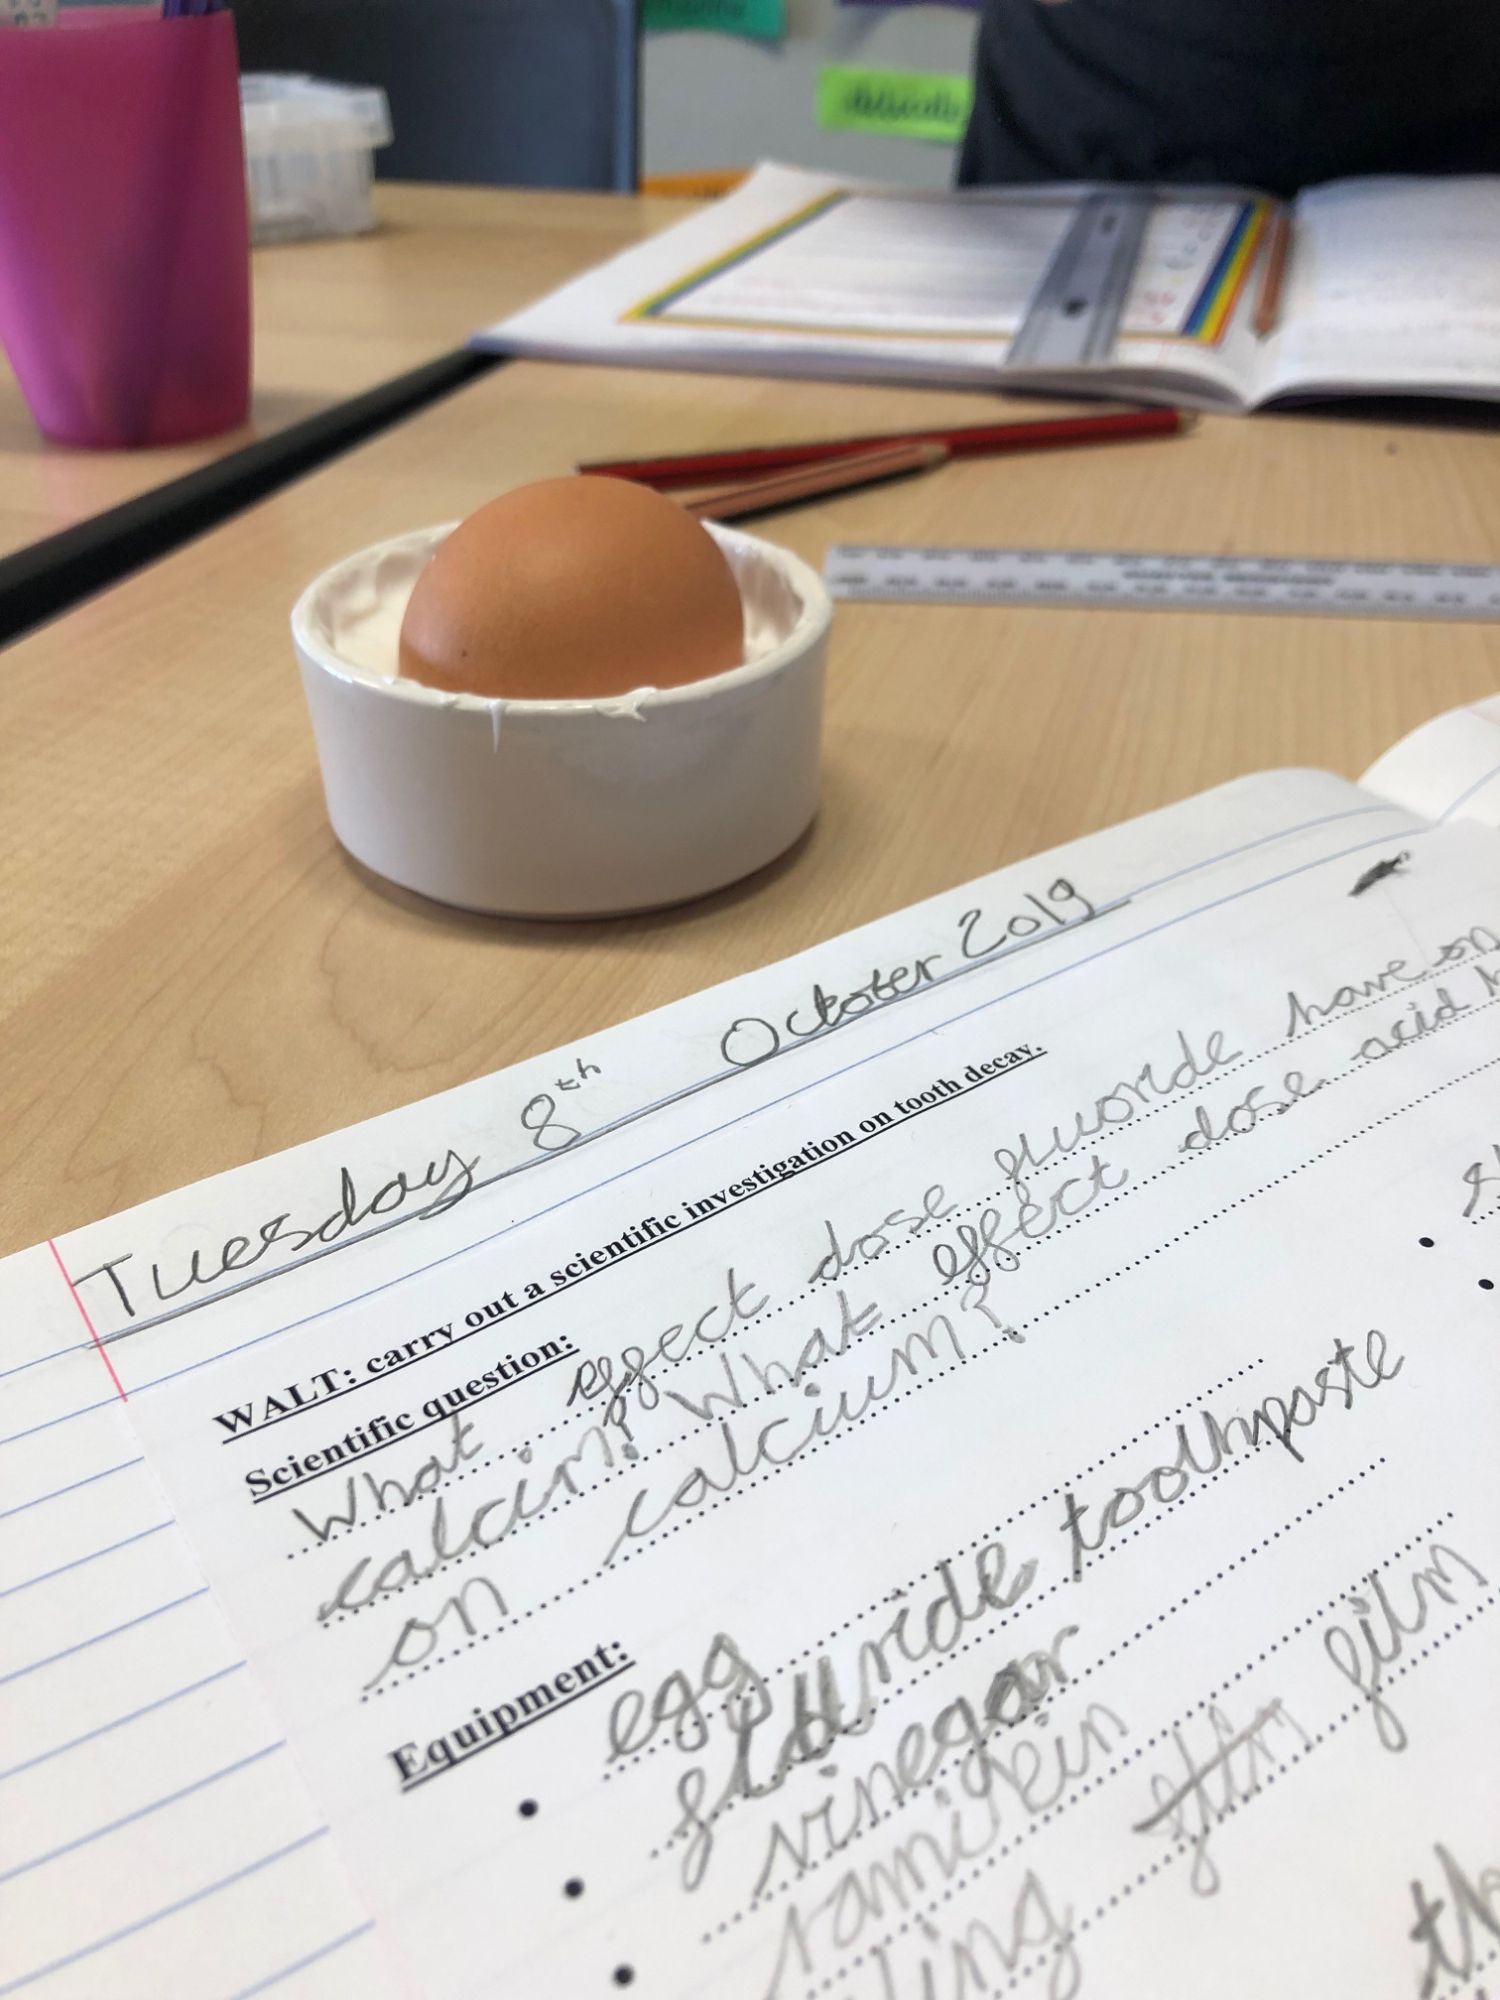 Tuesday 8th October 2019
WALT: carry out a scientific investigation on tooth decay.
Scientific question:
What effect dose fluoride have on
calcim? What effect dose acid
on calcium?
Equipment:
• egg
• fluride toothpaste
• vinegar
ramikin
ling film